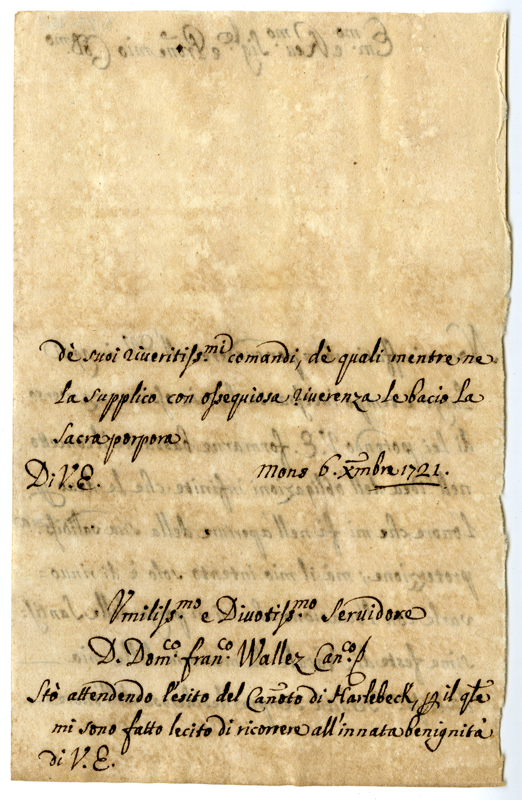 dè suoi riveritiss.mi comandi, dè quali mentre ne
la supplico con ossequiosa riverenza le bacio la
sacra porpora
Di V. E. Mons 6. Xmbre 1721.
Vmiliss.mo e Divotiss.mo Servidore
D. Dom.co fran.co Wallez Can.co
Stò attendendo l'esito del Can.to di Harlebeck, il qle
mi sono fatto lecito di ricorrere all'innata benignità
di V. E.